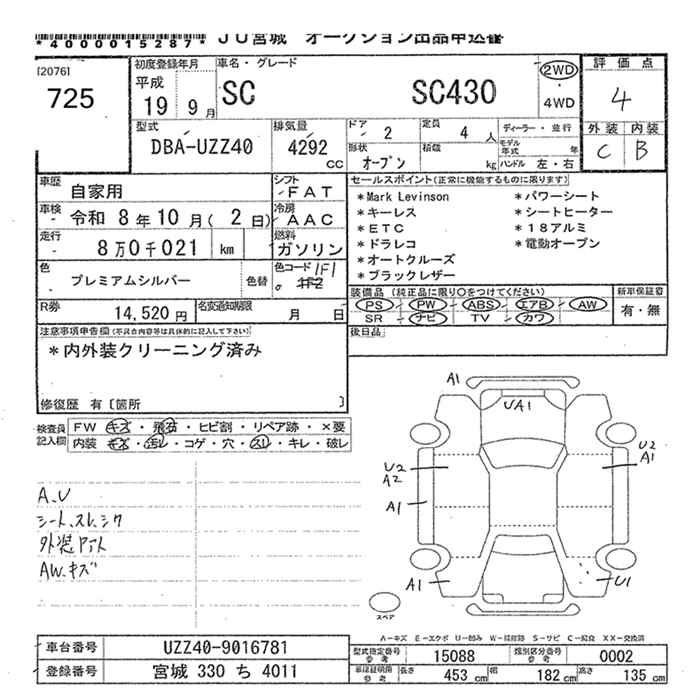 *4000015287* JU宮城 オークション出品申込書
[2076]
725
初度登録年月
平成
19 9 月
車名・グレード
SC SC430
2WD
・
4WD
評価点
4
外装 内装
C B
型式
DBA-UZZ40
排気量
4292 CC
ドア
2
定員
4 人
ディーラー・並行
形状
オープン
積載
kg
モデル年式 年
ハンドル 左・右
車歴
自家用
シフト
FAT
車検
令和 8年 10月( 2日)
冷房
AAC
走行
8万0千021 km
燃料
ガソリン
色
プレミアムシルバー
色替
色コード 1F1
R券
14,520円
名変通知期限
月 日
セールスポイント(正常に機能するものに限ります)
*Mark Levinson *パワーシート
*キーレス *シートヒーター
*ETC *18アルミ
*ドラレコ *電動オープン
*オートクルーズ
*ブラックレザー
装備品 (純正品に限り○をつけてください)
PS PW ABS エアB AW
SR ナビ TV カワ
新車保証書
有・無
後日品
注意事項申告欄(不具合内容等は具体的に記入して下さい)
*内外装クリーニング済み
修復歴 有〔箇所 〕
検査員記入欄
FW キズ・飛石・ヒビ割・リペア跡・×要
内装 キズ・汚レ・コゲ・穴・スレ・キレ・破レ
A.U
シート、スレ、シワ
外装
AW.キズ
A1
UA1
U2
A1
U2
A2
A1
A1
U1
スペア
A-キズ E-エクボ U-凹み W-補修跡 S-サビ C-腐食 XX-交換済
車台番号 UZZ40-9016781
登録番号 宮城 330 ち 4011
型式指定番号 参考 15088 類別区分番号 参考 0002
車検証明用 参考 長さ 453 cm 幅 182 cm 高さ 135 cm